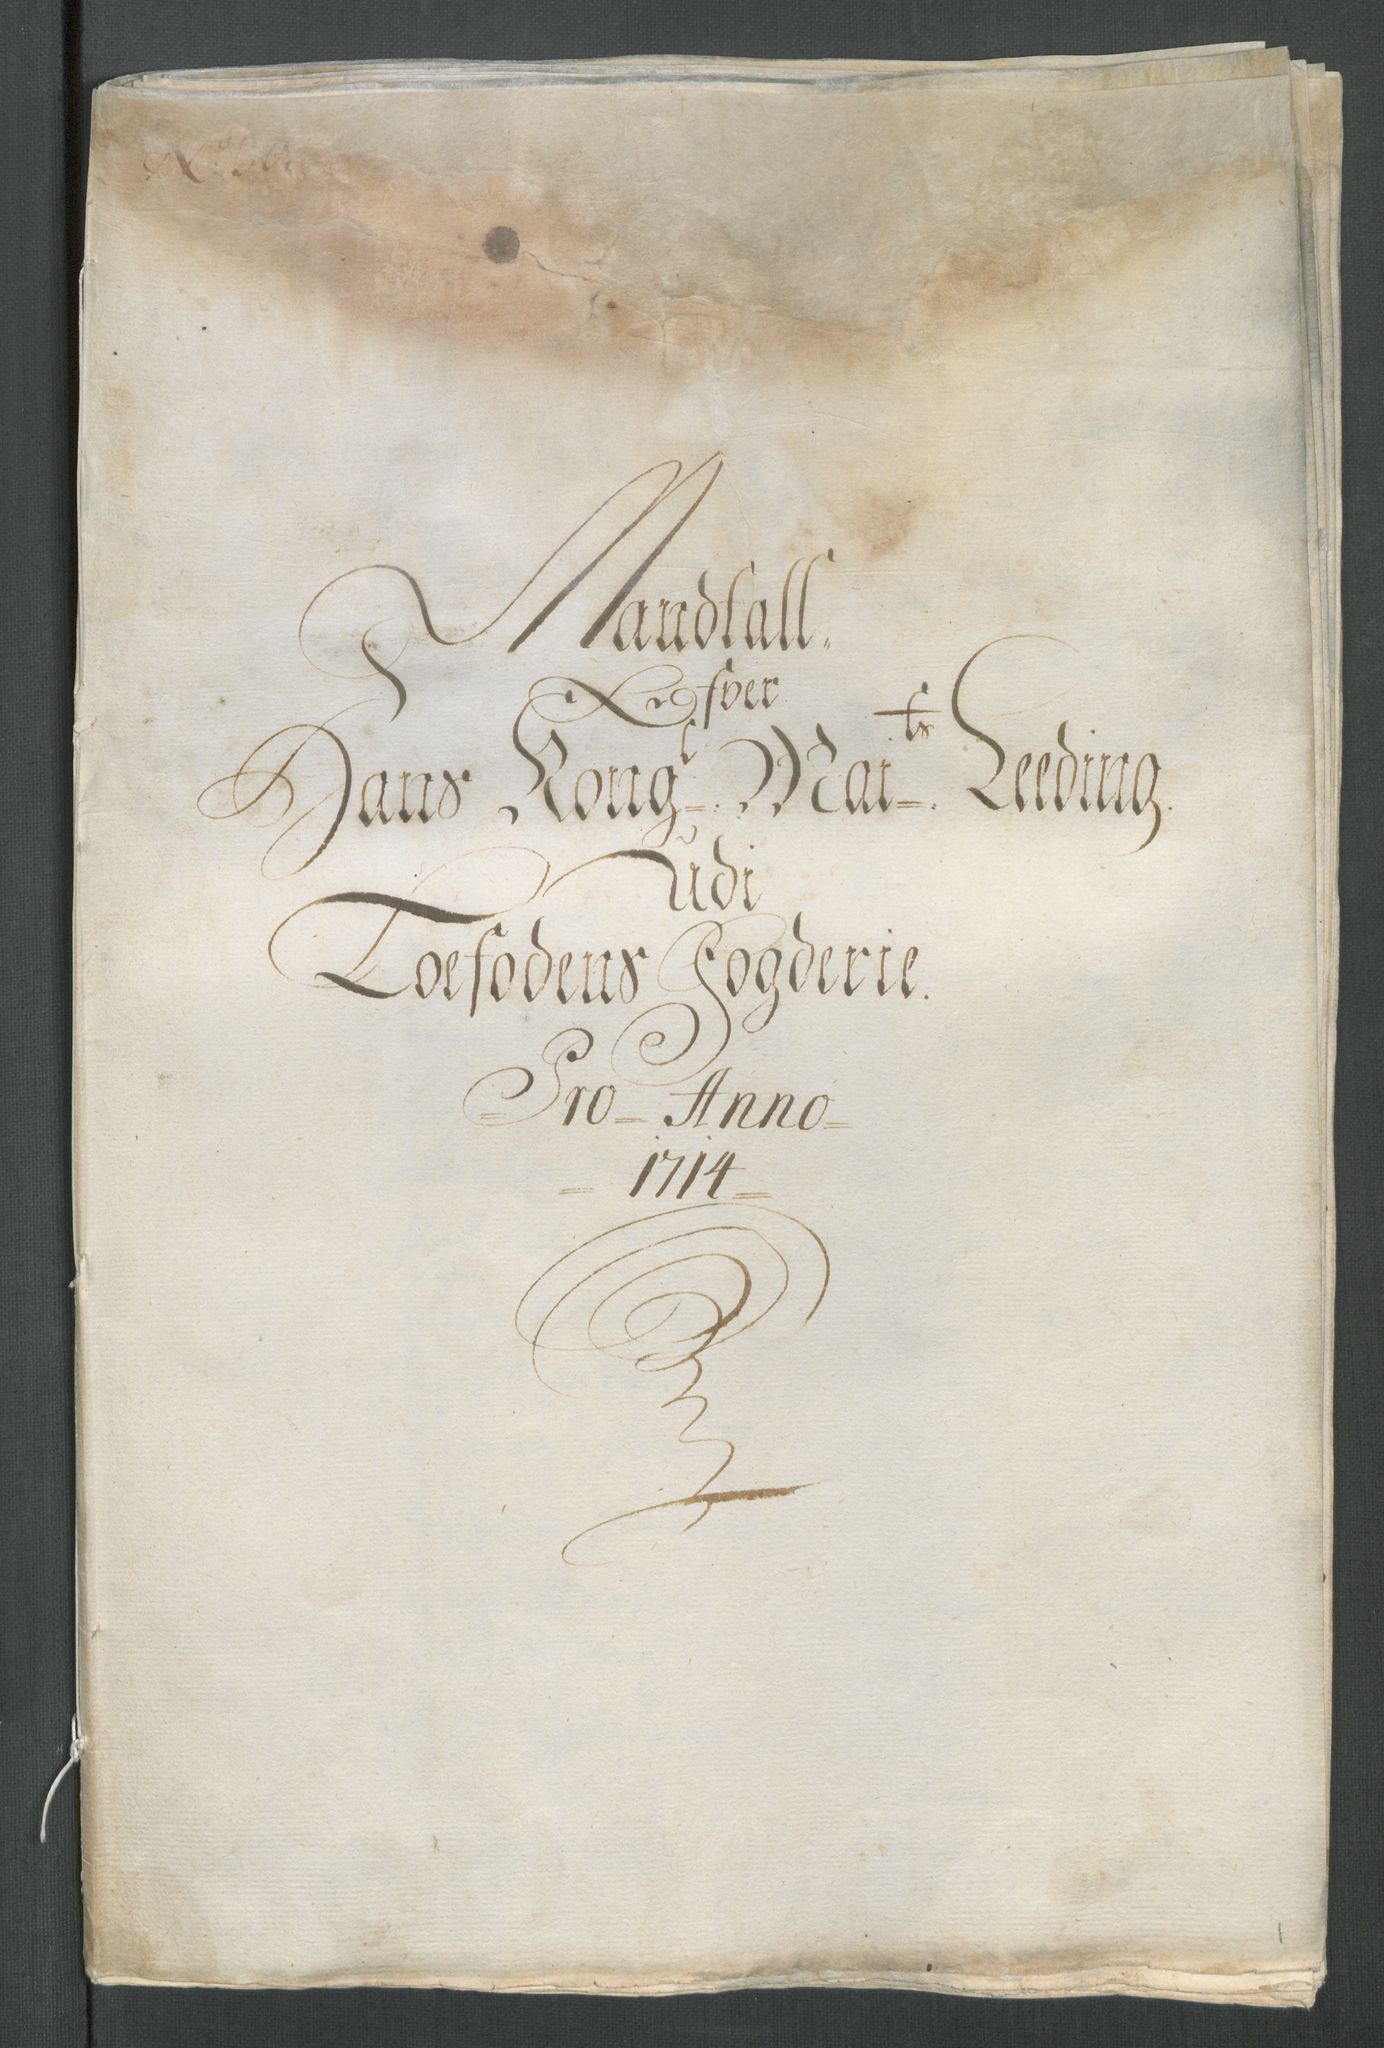 Mandtall.
Ofver
Hans Kongl. Maits. Leeding.
Udi
Toesodens Fogderie.
Pro Anno
1714